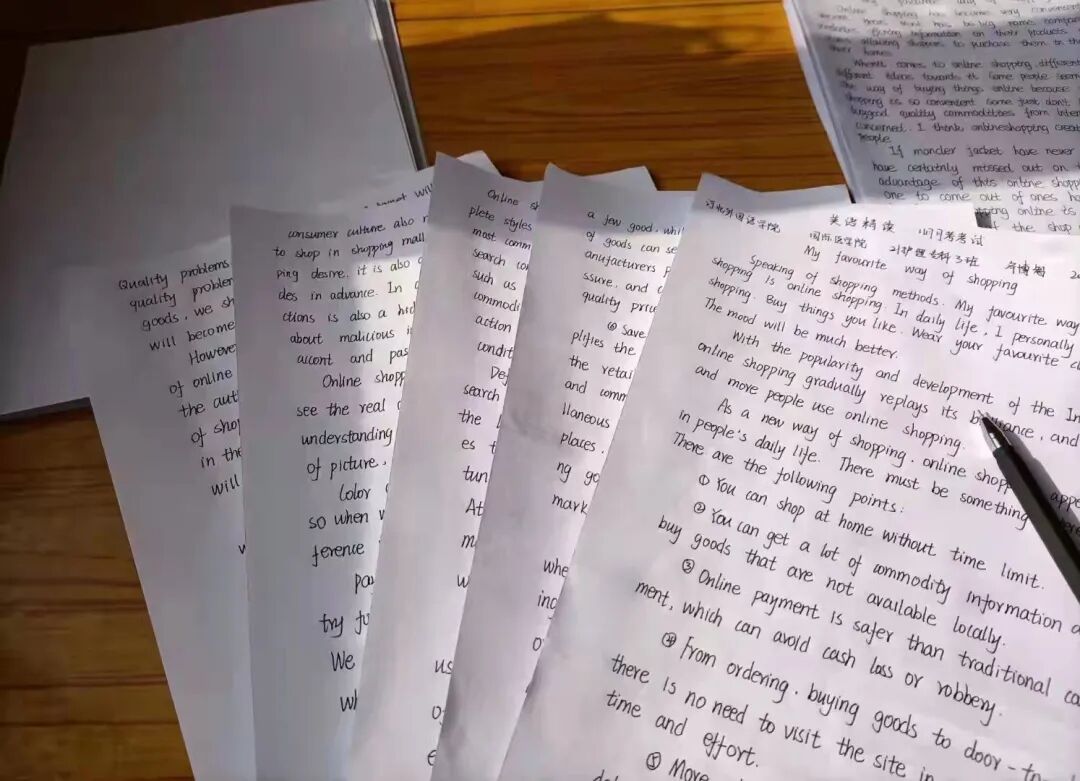 Quality problems
quality problem
goods, we sh
will become
However
of online
the aut
of shop
in the
will
w
will
consumer culture also
to shop in shopping mall
ping desire, it is also
des in advance. In
ctions is also a hid
about malicious i
accont and pas
Online shopp
see the real
understanding
of picture,
Color
so when w
ference
pay
try fu
We
wh
Online sh
plete styles
most comm
search con
such as
commodi
action
condit
De
search
the
es t
tun
At
m
w
us
o
e
a few good, whi
of goods can se
anufacturers p
ssure, and c
quality price
⑥ Save
plifies the
the retai
and comm
llaneous
places,
ng go
mark
whe
inc
o
河北外国语学院 英语精读 1月月考考试
国际医学院 21护理专科3班
My favourite way of shopping
Speaking of shopping methods. My favourite way
shopping is online shopping. In daily life, I personally
shopping. Buy things you like. Wear your favourite c
The mood will be much better.
With the popularity and development of the In
online shopping gradually replays its, and
and more people use online shopping.
As a new way of shopping, online shopp appe
in people's daily life. There must be something
There are the following points:
① You can shop at home without time limit.
② You can get a lot of commodity information a
buy goods that are not available locally.
③ Online payment is safer than traditional ca
ment, which can avoid cash loss or robbery.
④ From ordering, buying goods to door-to
there is no need to visit the site in
time and effort.
⑤ Move
Online shopping has become very convenient
information on their products
allowing shoppers to purchase them in the
their homes
When it comes to online shopping, different
different ideas towards it. Some people seem
way of buying things online because
shopping is so convenient. Some just don't
buygood quality commodities from Inter
concerned. I think, onlineshopping creat
people.
If moncler jacket have never
have certainly missed out on the
advantage of this online shopp
one to come out of ones ho
pping online is
f the shop